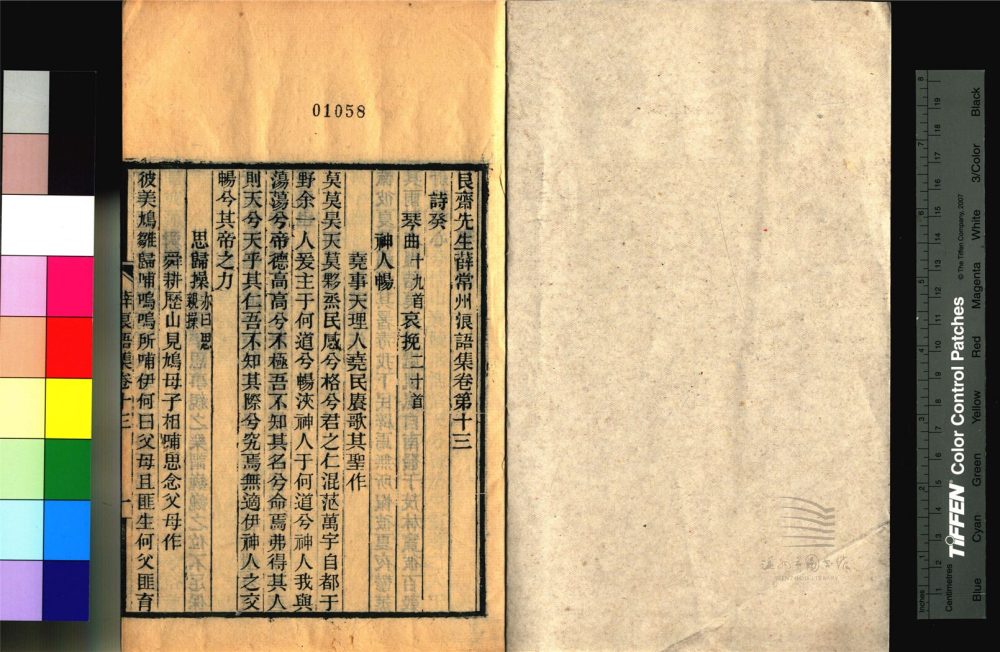 01058
艮齋先生薛常州浪語集卷第十三
詩癸
琴曲十九首哀挽二十首
神人暢
堯事天理人堯民賡歌其聖作
莫莫昊天莫夥烝民感兮格兮君之仁混茫萬宇自都于
野余一人爰主于何道兮暢浹神人于何道兮神人我與
蕩蕩兮帝德高高兮不極吾不知其名兮命焉弗得其人
則天兮天乎其仁吾不知其際兮究焉無適伊神人之交
暢兮其帝之力
思歸操亦曰思親操
舜耕歷山見鳩母子相哺思念父母作
彼美鳩雛歸哺嗚嗚所哺伊何曰父母且匪生何父匪育
浪語集卷十三
一
溫州市圖書館
WENZHOU LIBRARY
Inches
Centimetres
TIFFEN® Color Control Patches
© The Tiffen Company, 2007
Blue
Cyan
Green
Yellow
Red
Magenta
White
3/Color
Black